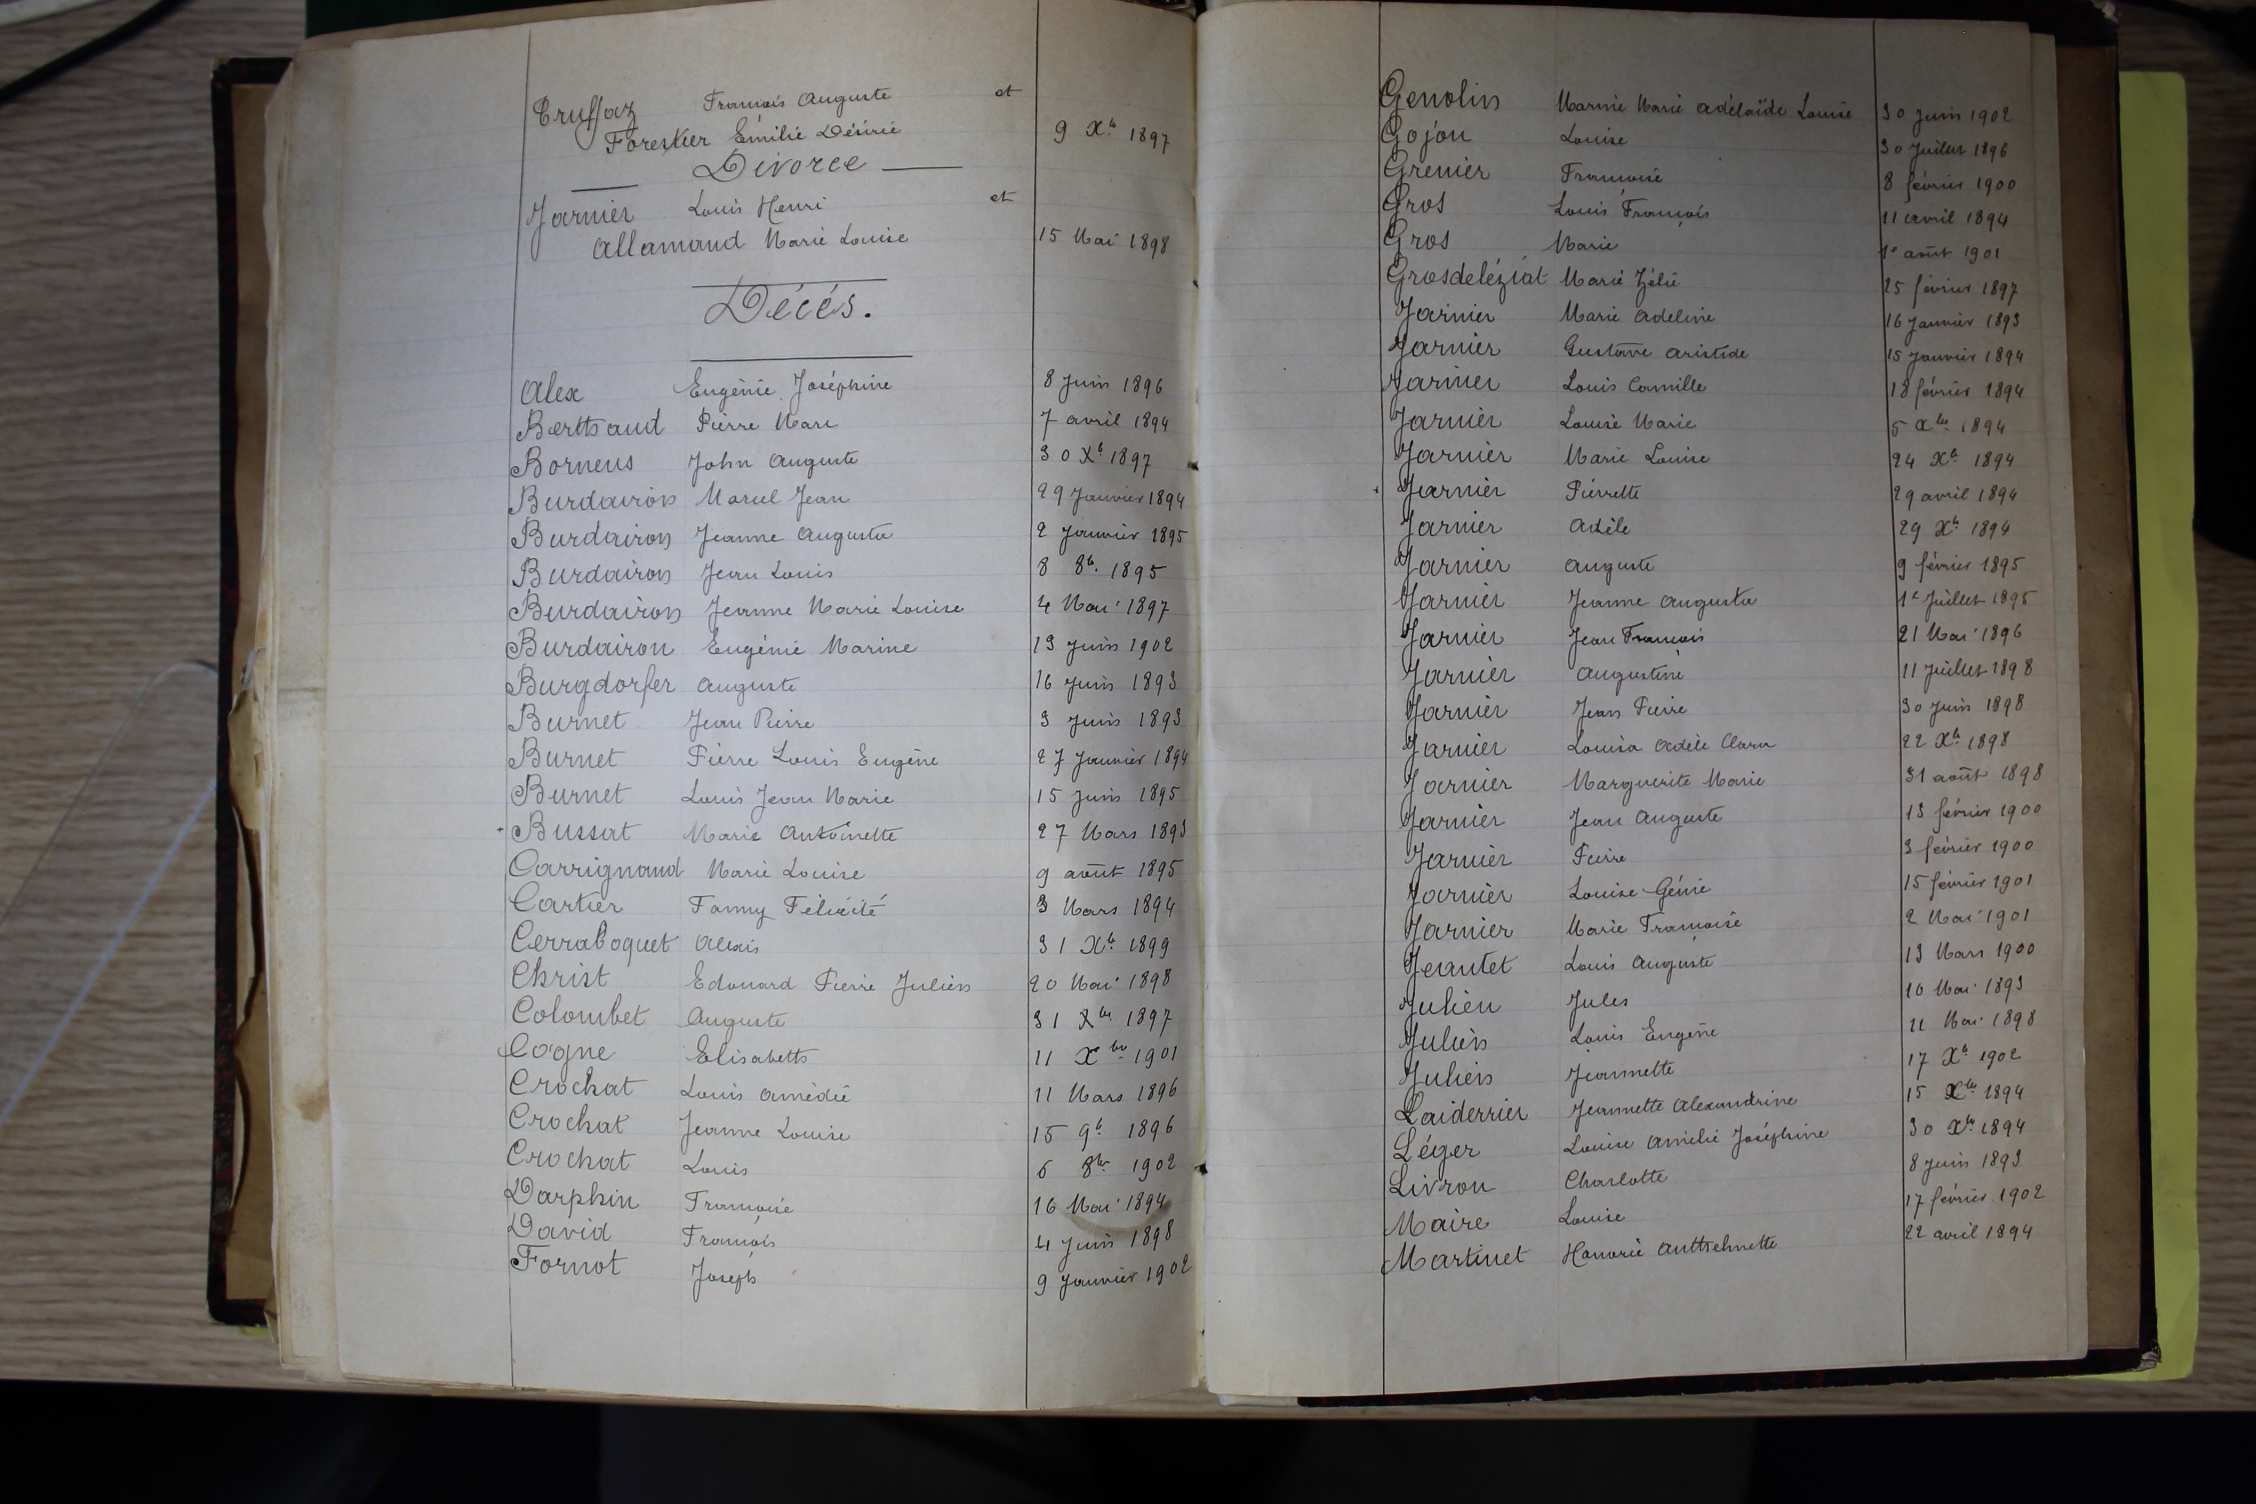 Truffaz François Auguste et
Forestier Émilie Désirée 9 Xb. 1897
Divorce
Jarnier Louis Henri et
Allamand Marie Louise 15 Mai 1898
Décés.
Alex Eugénie Joséphine 8 Juin 1896
Berthaud Pierre Marc 7 avril 1894
Bornens John Auguste 30 Xb 1897
Burdairon Marcel Jean 29 Janvier 1894
Burdairon Jeanne Augusta 2 Janvier 1895
Burdairon Jean Louis 8 8b. 1895
Burdairon Jeanne Marie Louise 4 Mai 1897
Burdairon Eugénie Marine 13 Juin 1902
Burgdorfer Auguste 16 Juin 1893
Burnet Jean Pierre 3 Juin 1893
Burnet Pierre Louis Eugène 27 Janvier 1894
Burnet Louis Jean Marie 15 Juin 1895
Bussat Marie Antoinette 27 Mars 1893
Carrignaud Marie Louise 9 août 1895
Cartier Fanny Félicité 3 Mars 1894
Cerraboquet Alexis 31 Xb. 1899
Christ Edouard Pierre Julien 20 Mai 1898
Colombet Auguste 31 Xbre 1897
Cogne Elisabeth 11 Xbre 1901
Crochat Louis Amédée 11 Mars 1896
Crochat Jeanne Louise 15 9b. 1896
Crochat Louis 6 8bre 1902
Darphin Françoise 16 Mai 1894
David François 4 Juin 1898
Fornot Joseph 9 Janvier 1902
Genolin Marnie Marie Adélaïde Louise 30 Juin 1902
Gojon Louise 30 Juillet 1896
Grenier Françoise 8 février 1900
Gros Louis François 11 avril 1894
Gros Marie 1r août 1901
Grosdeléziat Marie Zélie 25 février 1897
Jarnier Marie Adeline 16 Janvier 1893
Jarnier Gustave Aristide 15 Janvier 1894
Jarnier Louis Camille 18 février 1894
Jarnier Louise Marie 5 Xbre 1894
Jarnier Marie Louise 24 Xb. 1894
Jarnier Pierrette 29 avril 1894
Jarnier Adèle 29 Xb. 1894
Jarnier Auguste 9 février 1895
Jarnier Jeanne Augusta 1r Juillet 1895
Jarnier Jean François 21 Mai 1896
Jarnier Augustine 11 Juillet 1898
Jarnier Jean Pierre 30 Juin 1898
Jarnier Louisa Adèle Clara 22 Xb. 1898
Jarnier Marguerite Marie 31 août 1898
Jarnier Jean Auguste 13 février 1900
Jarnier Pierre 3 février 1900
Jarnier Louise Génie 15 février 1901
Jarnier Marie Françoise 2 Mai 1901
Jeantet Louis Auguste 13 Mars 1900
Julien Jules 10 Mai 1893
Julien Louis Eugène 11 Mai 1898
Julien Jeannette 17 Xb. 1902
Laiderrier Jeannette Alexandrine 15 Xbre 1894
Léger Louise Amélie Joséphine 30 Xbre 1894
Livron Charlotte 8 Juin 1893
Maire Louise 17 février 1902
Martinet Honorie 22 avril 1894